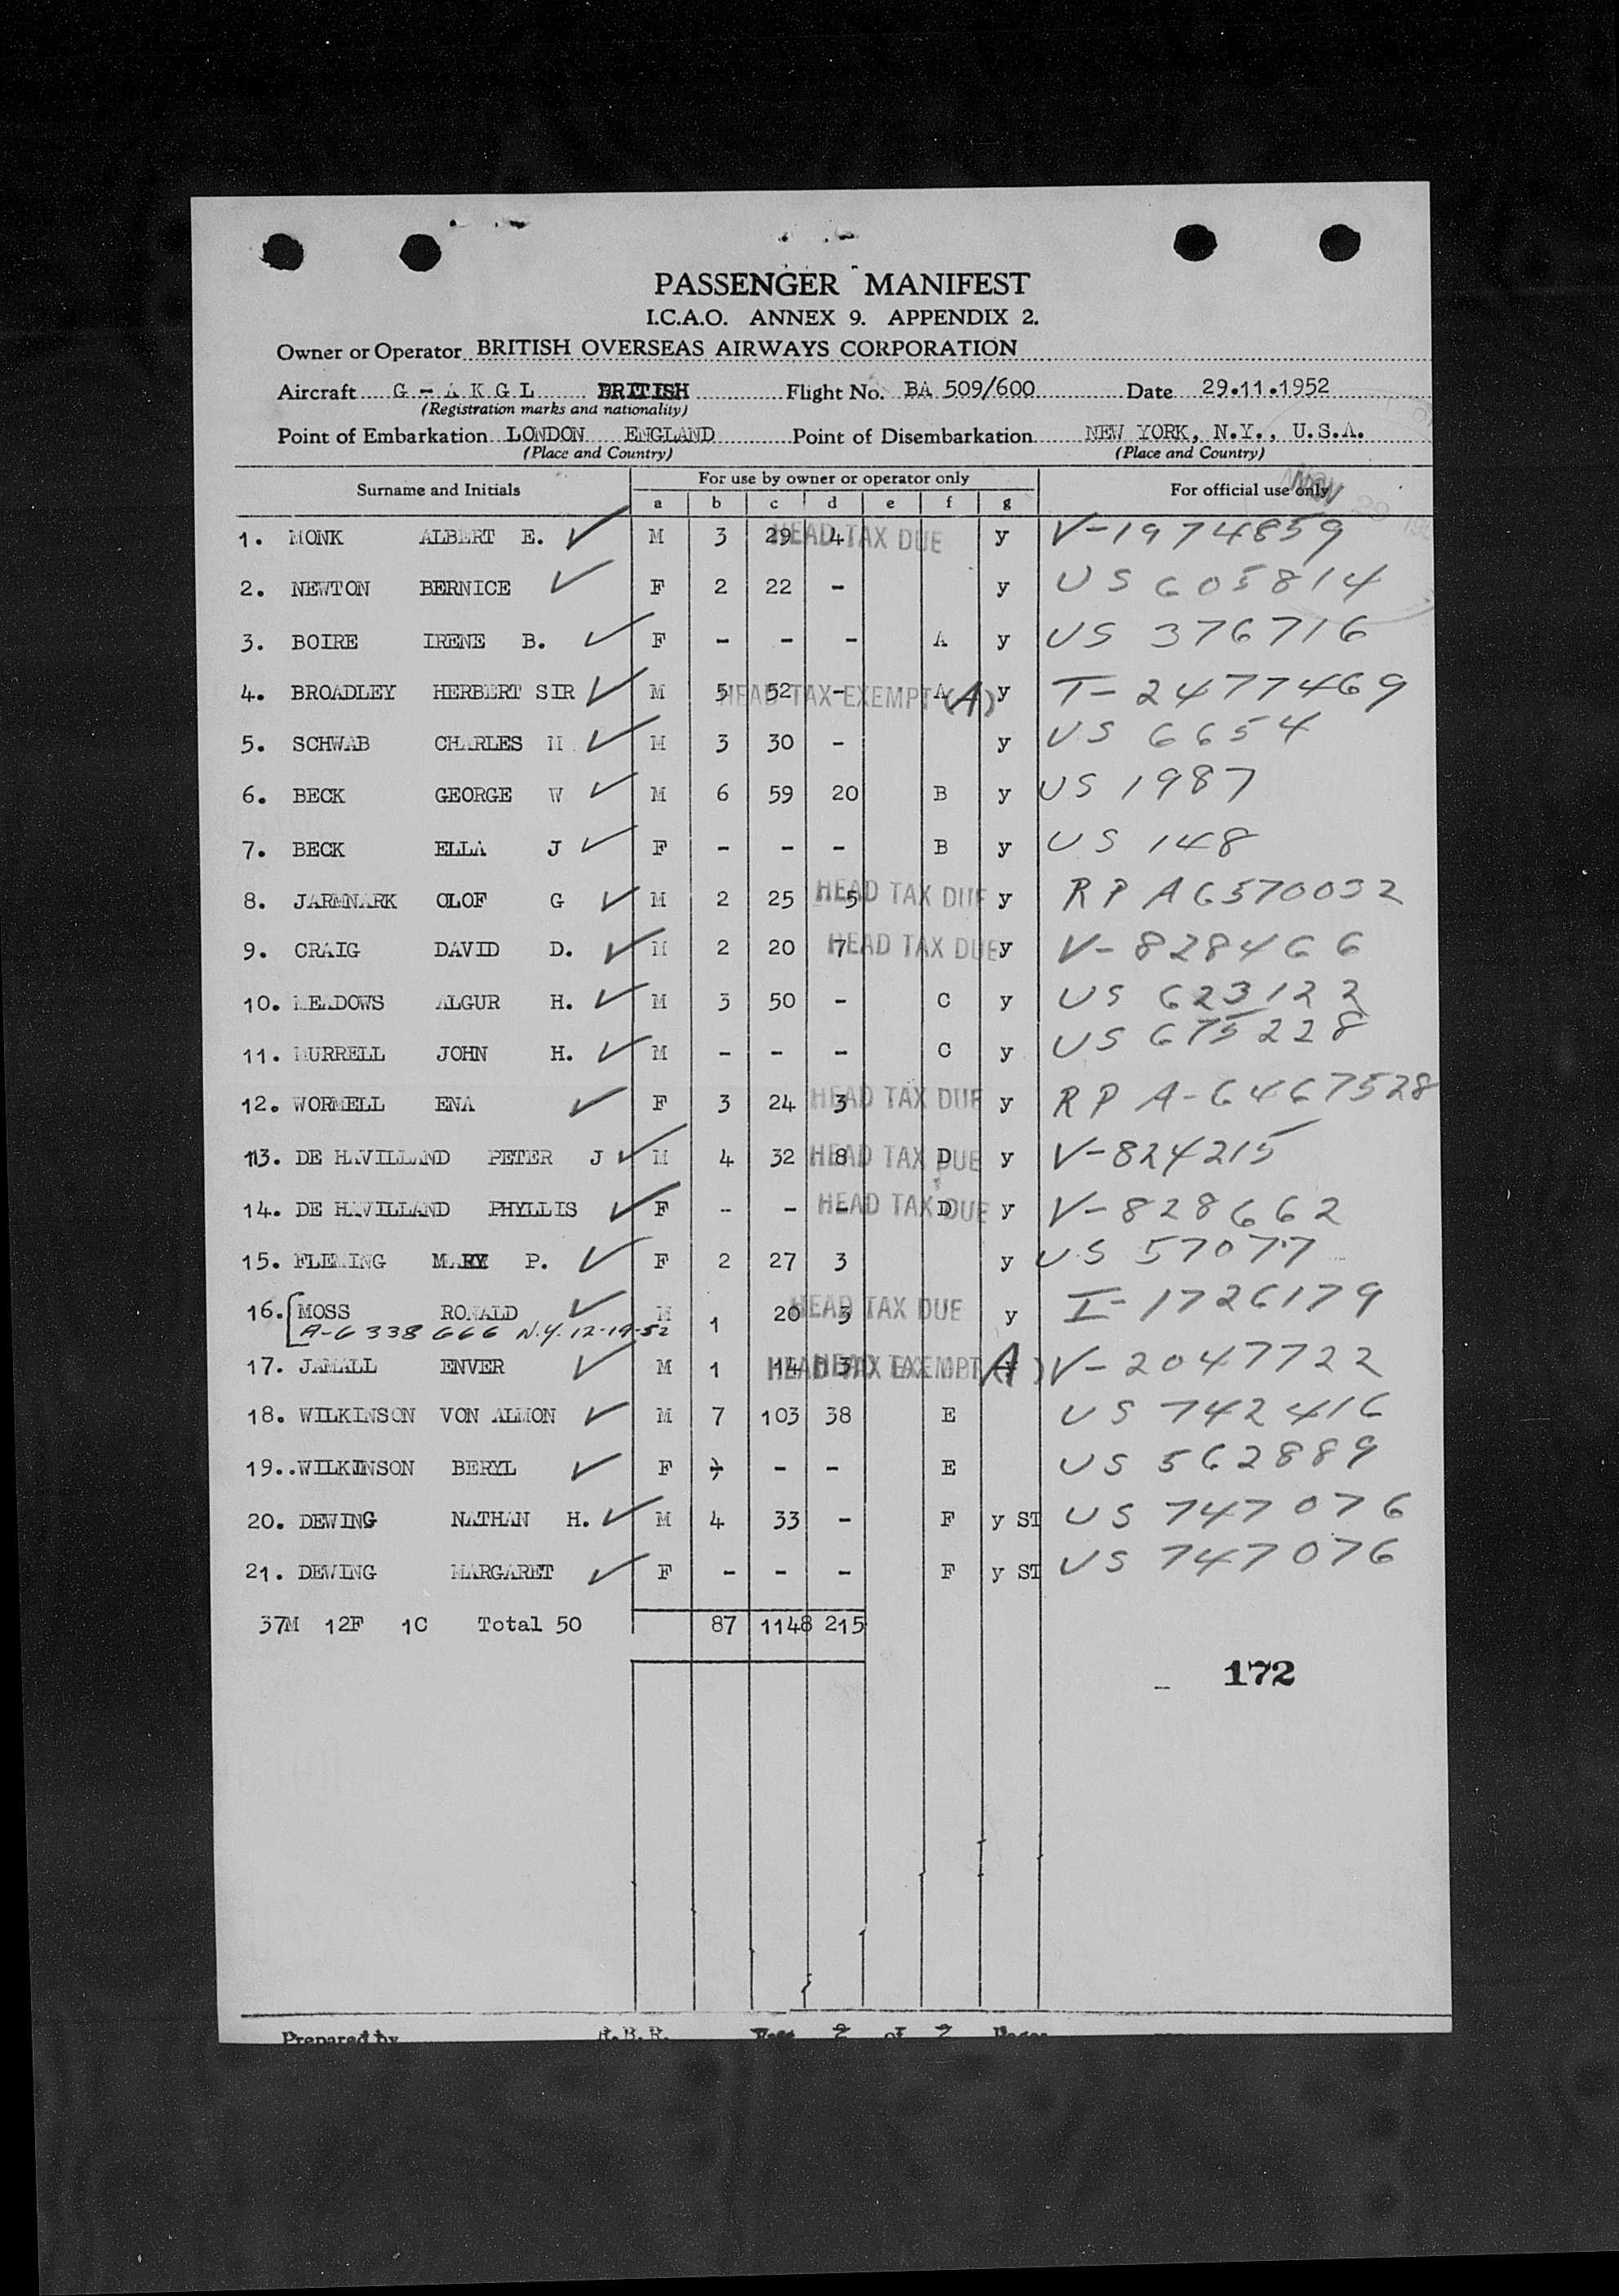 PASSENGER MANIFEST
I.C.A.O. ANNEX 9. APPENDIX 2.
Owner or Operator BRITISH OVERSEAS AIRWAYS CORPORATION
Aircraft G - A K G L BRITISH Flight No. BA 509/600 Date 29.11.1952
(Registration marks and nationality)
Point of Embarkation LONDON ENGLAND Point of Disembarkation NEW YORK, N.Y., U.S.A.
(Place and Country) (Place and Country)
Surname and Initials For use by owner or operator only For official use only
a b c d e f g
1. MONK ALBERT E. M 3 29 4 HEAD TAX DUE y V-1974859
2. NEWTON BERNICE F 2 22 - y US 605814
3. BOIRE IRENE B. F - - - A y US 376716
4. BROADLEY HERBERT SIR M 5 52 - A HEAD TAX EXEMPT (A) y T-2477469
5. SCHWAB CHARLES M 3 30 - y US 6654
6. BECK GEORGE W M 6 59 20 B y US 1987
7. BECK ELLA J F - - - B y US 148
8. JARMNARK OLOF G M 2 25 5 HEAD TAX DUE y RP A6570032
9. CRAIG DAVID D. M 2 20 7 HEAD TAX DUE y V-828466
10. MEADOWS ALGUR H. M 3 50 - C y US 623122
11. MURRELL JOHN H. M - - - C y US 675228
12. WORMELL ENA F 3 24 3 HEAD TAX DUE y RP A-6467528
113. DE HAVILLAND PETER J M 4 32 8 D HEAD TAX DUE y V-824215
14. DE HAVILLAND PHYLLIS F - - - D HEAD TAX DUE y V-828662
15. FLEMING MARY P. F 2 27 3 y US 57077
16. MOSS RONALD M 1 20 3 HEAD TAX DUE y I-1726179
A-6338666 N.Y. 12-19-52
17. JAMALL ENVER M 1 14 3 HEAD TAX EXEMPT (A) V-2047722
18. WILKINSON VON ALMON M 7 103 38 E US 742416
19..WILKINSON BERYL F - - - E US 562889
20. DEWING NATHAN H. M 4 33 - F y ST US 747076
21. DEWING MARGARET F - - - F y ST US 747076
37M 12F 1C Total 50 87 1148 215
172
Prepared by A.B.R. Page 2 of 2 Pages